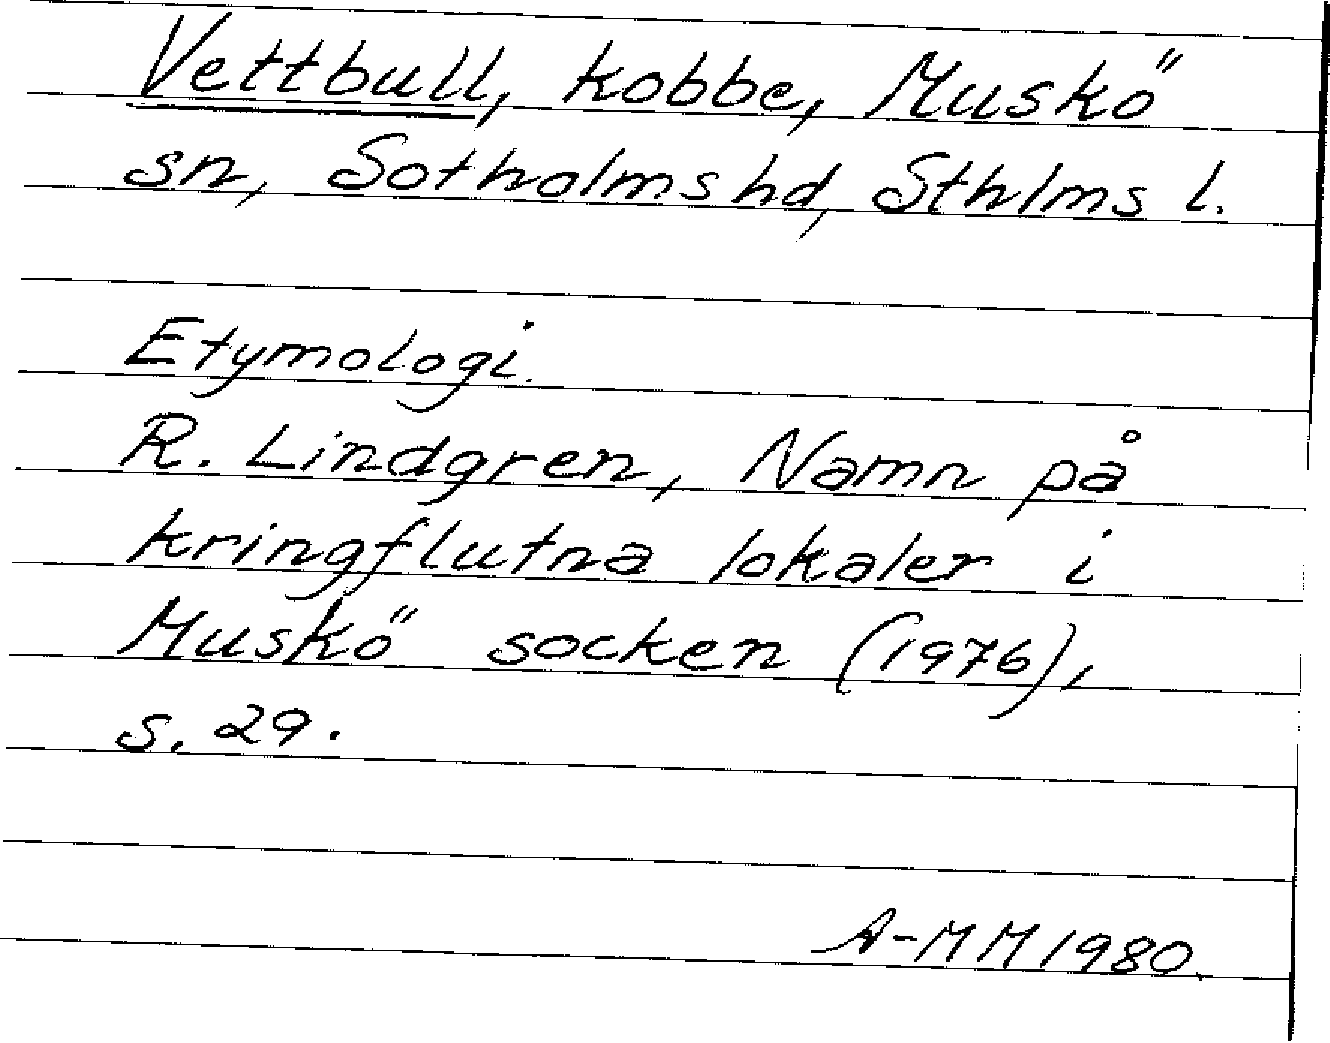 Vettbull, kobbe, Muskö
sn, Sotholms hd, Sthlms l.
Etymologi.
R. Lindgren, Namn på
kringflutna lokaler i
Muskö socken (1976),
s. 29.
A-MM 1980.